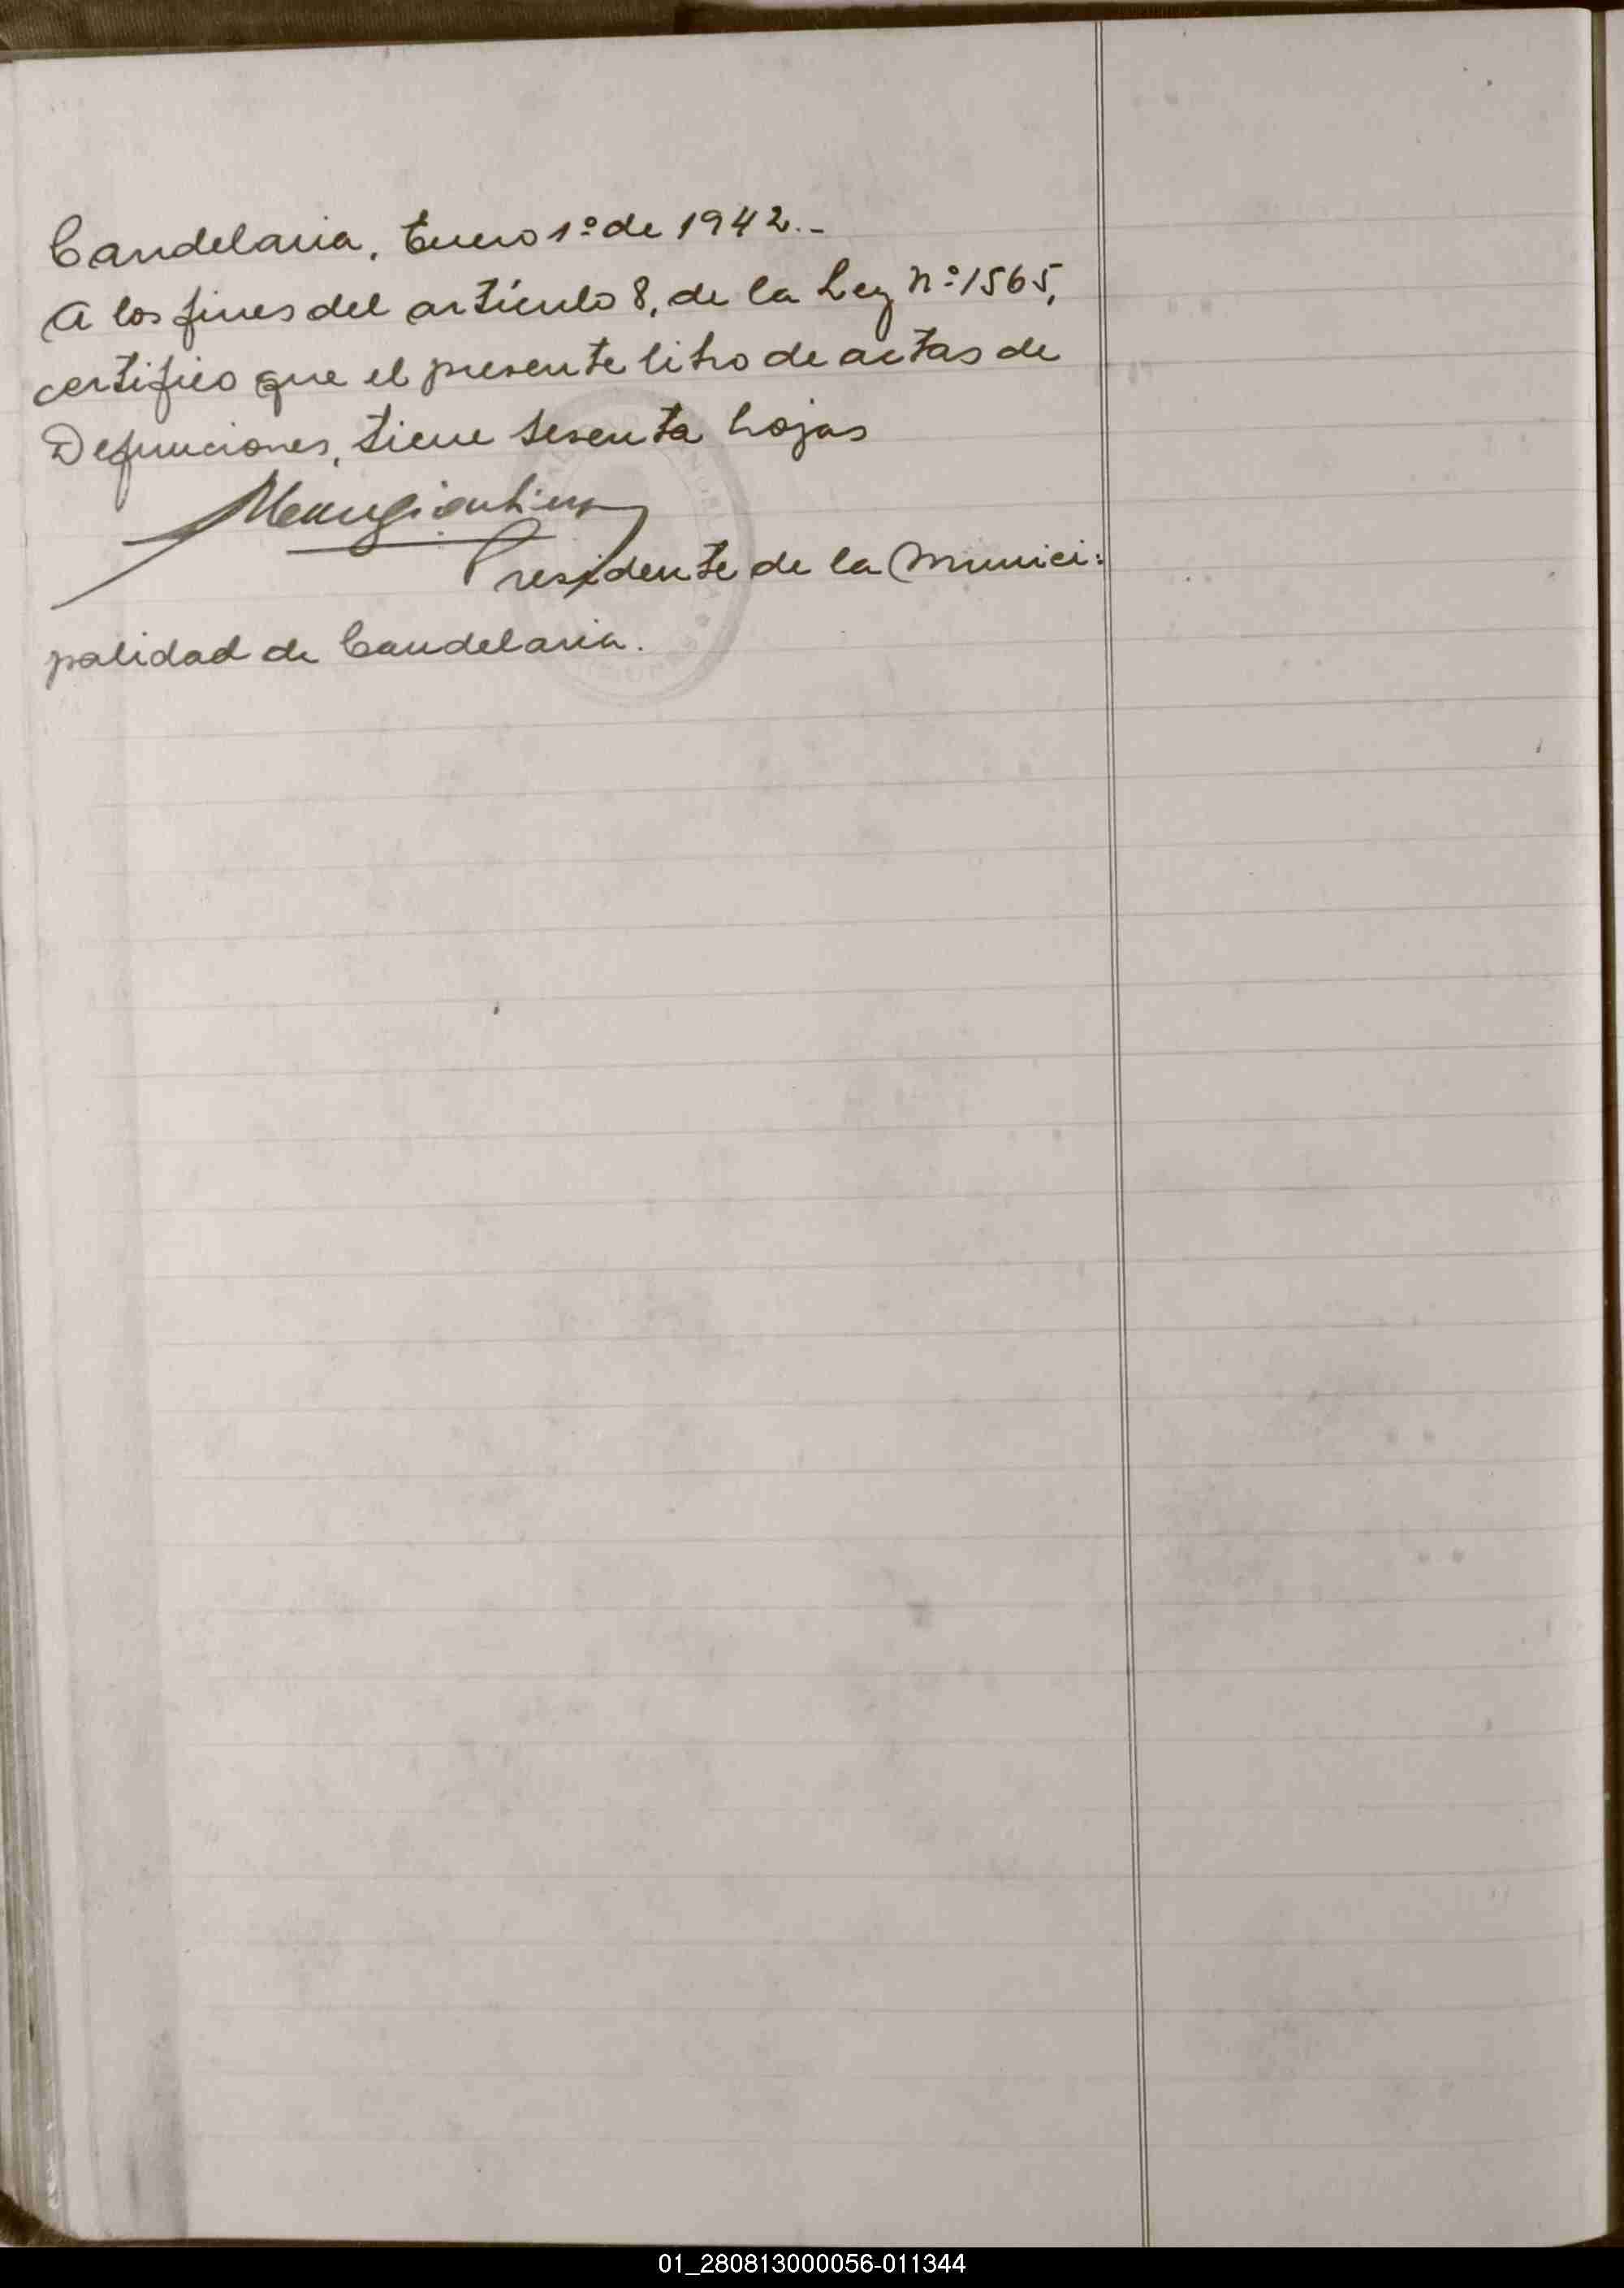 Candelaria, Enero 1º de 1942.-
A los fines del artículo 8, de la Ley nº 1565,
certifico que el presente libro de actas de
Defunciones, tiene sesenta hojas
Presidente de la Munici:
palidad de Candelaria.
01_280813000056-011344